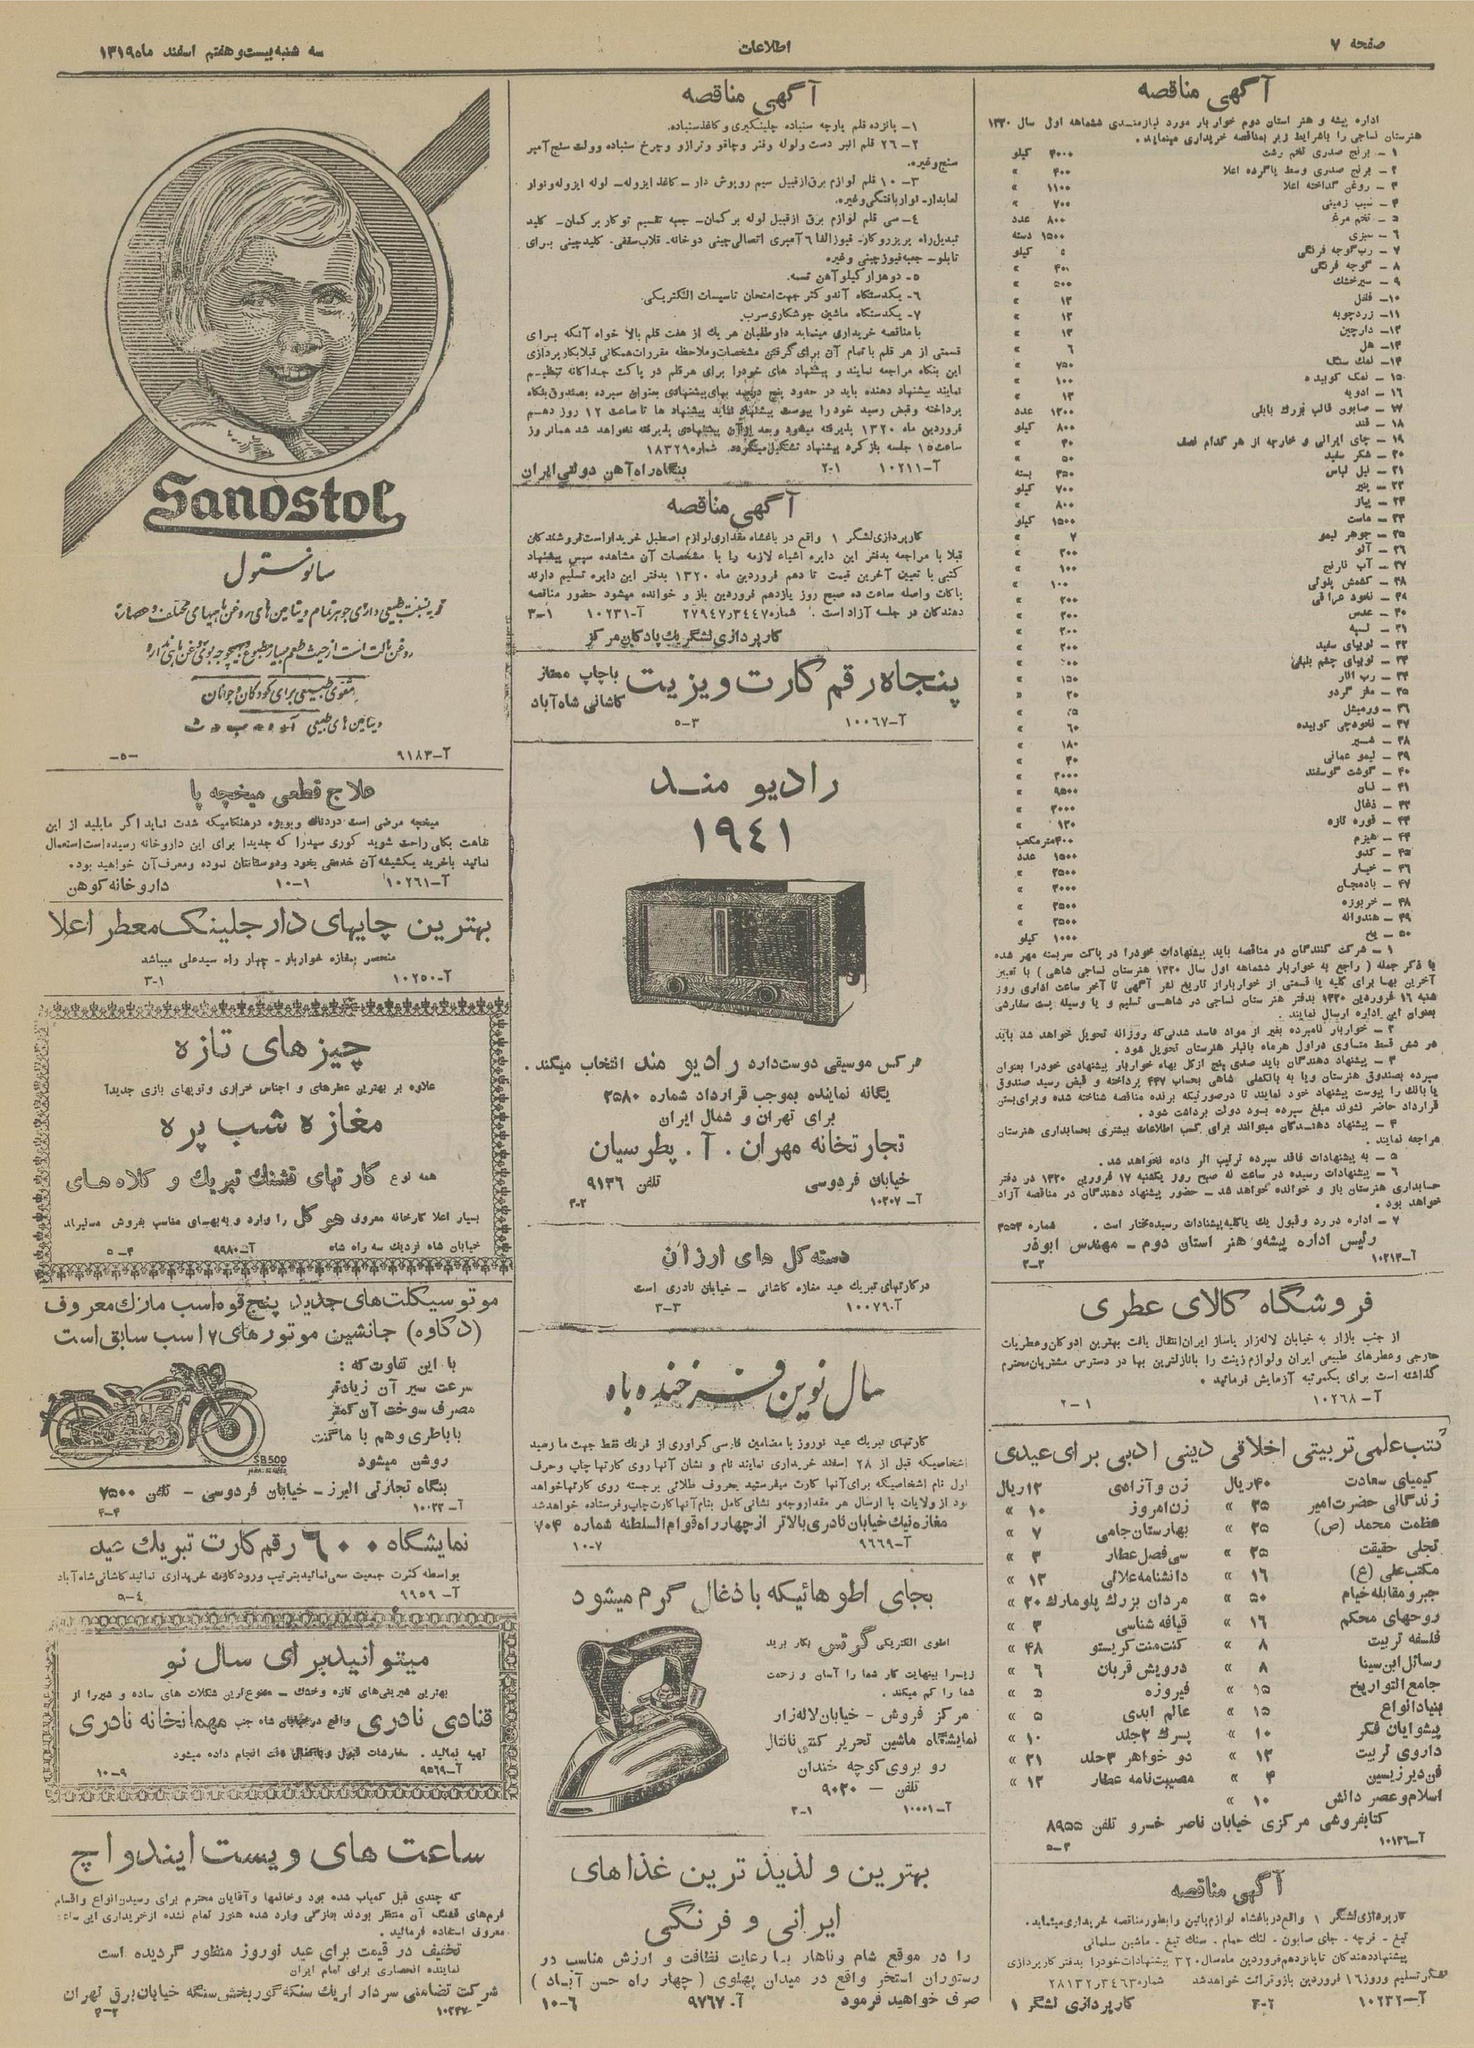 صفحه ۷
اطلاعات
سه شنبه بیست و هفتم اسفند ماه ۱۳۱۹
آگهی مناقصه
اداره پیشه و هنر استان دوم خواربار مورد نیازمندی ششماهه اول سال ۱۳۲۰
هنرستان نساجی را بشرایط زیر بمناقصه خریداری مینماید.
۱ - برنج صدری تخم رشت ۴۰۰۰ کیلو
۲ - برنج صدری وسط پاکرده اعلا ۴۰۰ »
۳ - روغن گداخته اعلا ۱۱۰۰ »
۴ - سیب زمینی ۷۰۰ »
۵ - تخم مرغ ۸۰۰ عدد
۶ - سبزی ۱۵۰۰ دسته
۷ - رب گوجه فرنگی کیلو
۸ - گوجه فرنگی »
۹ - سیرخشک »
۱۰ - فلفل ۱۲ »
۱۱ - زردچوبه ۱۲ »
۱۲ - دارچین ۱۲ »
۱۳ - هل ۶ »
۱۴ - نمک سنگ ۷۵۰ »
۱۵ - نمک کوبیده ۱۰۰ »
۱۶ - ادویه ۱۲ »
۱۷ - صابون قالب بزرگ بابلی ۱۲۰۰ عدد
۱۸ - قند ۸۰۰ کیلو
۱۹ - چای ایرانی و خارجه از هر کدام نصف »
۲۰ - شکر سفید ۵۰ »
۲۱ - نیل لباس بسته
۲۲ - پنیر ۷۰۰ کیلو
پیاز ۸۰۰ »
ماست ۱۵۰۰ کیلو
۲۵ - جوهر لیمو ۷ »
۲۶ - آلو »
۲۷ - آب نارنج ۱۰۰ »
۲۸ - کشمش پلوئی ۱۰۰ »
۲۹ - نخود عراقی »
۳۰ - عدس »
۳۱ - لپه »
۳۲ - لوبیای سفید »
۳۳ - لوبیای چشم بلبلی »
۳۴ - رب انار ۱۵۰ »
۳۵ - مغز گردو »
۳۶ - ورمیشل »
۳۷ - نخودچی کوبیده ۶۰ »
۳۸ - شیر ۱۸۰ »
۳۹ - لیمو عمانی »
۴۰ - گوشت گوسفند »
۴۱ - نان ۹۵۰۰ »
۴۲ - ذغال »
۴۳ - غوره تازه »
۴۴ - هیزم مترمکعب
۴۵ - کدو ۱۵۰۰ عدد
۴۶ - خیار ۲۵۰۰ »
۴۷ - بادمجان »
۴۸ - خربوزه »
۴۹ - هندوانه »
۵۰ - یخ ۱۰۰۰ کیلو
۱ - شرکت کنندگان در مناقصه باید پیشنهادات خودرا در پاکت سربسته مهر شده
با ذکر جمله ( راجع به خواربار ششماهه اول سال ۱۳۲۰ هنرستان نساجی شاهی ) با تعیین
آخرین بها برای کلیه یا قسمتی از خواربار از تاریخ نشر آگهی تا آخر ساعت اداری روز
شنبه ۱۶ فروردین ۱۳۲۰ بدفتر هنرستان نساجی در شاهی تسلیم و یا وسیله پست سفارشی
بعنوان این اداره ارسال نمایند.
۲ - خواربار نامبرده بغیر از مواد فاسد شدنی که روزانه تحویل خواهد شد باید
در شش قسط متساوی در اول هرماه بانبار هنرستان تحویل شود.
۳ - پیشنهاد دهندگان باید صدی پنج از کل بهاء خواربار پیشنهادی خودرا بعنوان
سپرده بصندوق هنرستان ویا به بانکملی شاهی بحساب ۴۴۷ پرداخته و قبض رسید صندوق
یا بانک را پیوست پیشنهاد خود نمایند تا درصورتیکه برنده مناقصه شناخته شده و برای بستن
قرارداد حاضر نشوند مبلغ سپرده بسود دولت برداشت شود.
۴ - پیشنهاد دهندگان میتوانند برای کسب اطلاعات بیشتری بحسابداری هنرستان
مراجعه نمایند.
۵ - به پیشنهادات فاقد سپرده ترتیب اثر داده نخواهد شد.
۶ - پیشنهادات رسیده در ساعت نه صبح روز یکشنبه ۱۷ فروردین ۱۳۲۰ در دفتر
حسابداری هنرستان باز و خوانده خواهد شد - حضور پیشنهاد دهندگان در مناقصه آزاد
خواهد بود.
۷ - اداره در رد و قبول یك یا کلیه پیشنهادات رسیده مختار است. شماره ۳۵۵۳
رئیس اداره پیشه و هنر استان دوم - مهندس ابوذر
آ-۱۰۲۱۳ ۳-۲
فروشگاه کالای عطری
از جنب بازار به خیابان لاله‌زار پاساژ ایران انتقال یافت بهترین ادوکلن و عطریات
خارجی و عطرهای طبیعی ایران و لوازم زینت را بانازلترین بها در دسترس مشتریان محترم
گذاشته است برای یکمرتبه آزمایش فرمائید.
آ-۱۰۲۶۸ ۲-۱
کتب علمی تربیتی اخلاقی دینی ادبی برای عیدی
کیمیای سعادت ۴۰ریال زن و آزادی ۱۲ریال
زندگانی حضرت امیر ۲۵ » زن امروز ۱۰ »
عظمت محمد (ص) ۲۵ » بهارستان جامی ۷ »
تجلی حقیقت ۲۵ » سی فصل عطار ۳ »
مکتب علی (ع) ۱۶ » دانشنامه علائی ۱۳ »
جبر و مقابله خیام ۵۰ » مردان بزرك پلوتارك ۲۰ »
روحهای محکم ۱۶ » قیافه شناسی ۳ »
فلسفه تربیت ۸ » کنت منت کریستو ۴۸ »
رسائل ابن سینا ۸ » درویش قربان ۶ »
جامع التواریخ ۱۵ » فیروزه ۵ »
بنیاد انواع ۱۵ » عالم ابدی ۵ »
پیشوایان فکر ۱۰ » پسرك ۲جلد ۱۰ »
داروی تربیت ۱۲ » دو خواهر ۳جلد ۲۱ »
فن دبیرزیستن ۴ » مصیبت‌نامه عطار ۱۲ »
اسلام و عصر دانش ۱۰ »
کتابفروشی مرکزی خیابان ناصر خسرو تلفن ۸۹۵۵
آ-۱۰۱۳۶ ۵-۳
آگهی مناقصه
کارپردازی لشگر ۱ واقع در باغشاه لوازم پائین را بطور مناقصه خریداری مینماید.
تیغ - فرچه - جای صابون - لنك حمام - سنك تیغ - ماشین سلمانی
پیشنهاد دهندگان تا پانزدهم فروردین ماه سال ۳۲۰ پیشنهادات خودرا بدفتر کارپردازی
لشگر تسلیم و روز ۱۶ فروردین باز و قرائت خواهد شد شماره ۲۸۱۳۲٫۳۴۶۳
آ-۱۰۲۳۲ ۴-۲ کارپردازی لشگر ۱
آگهی مناقصه
۱- پانزده قلم پارچه سنباده چلینگیری و کاغذ سنباده.
۲- ۲۶ قلم انبر دست و لوله و فنر و چاقو و ترازو و چرخ سنباده و ولت سنج آمپر
سنج وغیره.
۳- ۱۰ قلم لوازم برق از قبیل سیم روپوش دار - کاغذ ایزوله - لوله ایزوله و نوار
لعابدار - نوار بافتگی و غیره.
۴- سی قلم لوازم برق از قبیل لوله برکمان - جعبه تقسیم توکار برکمان - کلید
تبدیل راه پریز روکار - فیوز الفا ۶ آمپری اتصالی چینی دوخانه - قلاب سقفی - کلید چینی برای
تابلو - جعبه فیوز چینی و غیره
۵- دوهزار کیلو آهن تسمه.
۶- یکدستگاه آندوکتر جهت امتحان تاسیسات الکتریکی.
۷- یکدستگاه ماشین جوشکاری سرب.
با مناقصه خریداری مینماید داوطلبان هر یك از هفت قلم بالا خواه آنکه برای
قسمتی از هر قلم یا تمام آن برای گرفتن مشخصات و ملاحظه مقررات همگانی قبلا بکارپردازی
این بنگاه مراجعه نمایند و پیشنهاد های خودرا برای هر قلم در پاکت جداگانه تنظیم
نمایند پیشنهاد دهنده باید در حدود پنج درصد بهای پیشنهادی بعنوان سپرده بصندوق بنگاه
پرداخته و قبض رسید خودرا پیوست پیشنهاد نماید پیشنهاد ها تا ساعت ۱۲ روز دهم
فروردین ماه ۱۳۲۰ پذیرفته میشود و بعد از آن پیشنهادی پذیرفته نخواهد شد همان روز
ساعت ۱۵ جلسه باز کرد پیشنهاد تشکیل میگردد. شماره ۱۸۳۲۹
آ-۱۰۲۱۱ ۲-۱ بنگاه راه آهن دولتی ایران
آگهی مناقصه
کارپردازی لشگر ۱ واقع در باغشاه مقداری لوازم اصطبل خریدار است فروشندگان
قبلا با مراجعه بدفتر این دایره اشیاء لازمه را با مشخصات آن مشاهده سپس پیشنهاد
کتبی با تعیین آخرین قیمت تا دهم فروردین ماه ۱۳۲۰ بدفتر این دایره تسلیم دارند
پاکات واصله ساعت ده صبح روز یازدهم فروردین باز و خوانده میشود حضور مناقصه
دهندگان در جلسه آزاد است. شماره ۲۷۹۴۷٫۳۴۴۷ آ-۱۰۲۳۱ ۳-۱
کارپردازی لشگر یك پادگان مرکز
پنجاه رقم کارت ویزیت با چاپ ممتاز
کاشانی شاه‌آباد
آ-۱۰۰۶۷ ۵-۳
رادیو مند
۱۹٤۱
هرکس موسیقی دوست دارد رادیو مند انتخاب میکند.
یگانه نماینده بموجب قرارداد شماره ۲۵۸۰
برای تهران و شمال ایران
تجارتخانه مهران . آ . پطرسیان
خیابان فردوسی تلفن ۹۱۳۶
آ-۱۰۲۰۷ ۴-۲
دسته گل های ارزان
در کارتهای تبریك عید مغازه کاشانی - خیابان نادری است
آ.۱۰۰۷۹ ۳-۳
سال نوین فرخنده باد
کارتهای تبریك عید نوروز با مضامین فارسی گراوری از فرنك فقط جهت ما رسید
اشخاصیکه قبل از ۲۸ اسفند خریداری نمایند نام و نشان آنها روی کارتها چاپ و حرف
اول نام اشخاصیکه برای آنها کارت میفرستید بحروف طلائی برجسته روی کارتها خواهد
بود از ولایات با ارسال هر مقدار وجه و نشانی کامل بنام آنها کارت چاپ و فرستاده خواهد شد
مغازه نیك خیابان نادری بالاتر از چهارراه قوام السلطنه شماره ۷۰۴
آ-۹۶۶۹ ۱۰-۷
بجای اطو هائیکه با ذغال گرم میشود
اطوی الکتریکی گرتس بکار برید
زیرا بینهایت کار شما را آسان و زحمت
شما را کم میکند.
مرکز فروش - خیابان لاله‌زار
نمایشگاه ماشین تحریر کنتی نانتال
رو بروی کوچه خندان
تلفن - ۹۰۲۰
آ-۱۰۰۰۱ ۲-۱
بهترین و لذیذ ترین غذاهای
ایرانی و فرنگی
را در موقع شام و ناهار با رعایت نظافت و ارزش مناسب در
رستوران استخر واقع در میدان پهلوی ( چهار راه حسن آباد )
صرف خواهید فرمود آ-۹۷۶۷ ۱۰-۶
Sanostol
سانوستول
بنسبت طبیعی دارای جوهر تمام ویتامین های روغن ماهیهای مختلف و عصاره
روغن مالت است از حیث طعم بسیار مطبوع و بهیچوجه بوی روغن ماهی ندارد
مقوی طبیعی برای کودکان و جوانان
ویتامین های طبیعی
آ-۹۱۸۳ -۵-
علاج قطعی میخچه پا
میخچه مرضی است دردناك و بویژه در هنگامیکه شدت نماید اگر مایلید از این
نقاهت بکلی راحت شوید کوری سیدرا که جدیدا برای این داروخانه رسیده است استعمال
نمائید با خرید یکشیشه آن خدمتی بخود و دوستانتان نموده و معرف آن خواهید بود.
آ-۱۰۲۶۱ ۱۰-۱ داروخانه کوهن
بهترین چایهای دارجلینك معطر اعلا
منحصر بمغازه خواربار - چهار راه سیدعلی میباشد
آ-۱۰۲۵۰ ۳-۱
چیزهای تازه
علاوه بر بهترین عطرهای و اجناس خرازی و توپهای بازی جدیدا
مغازه شب پره
همه نوع کارتهای قشنك تبریك و کلاه های
بسیار اعلا کارخانه معروف هوکل را وارد و به بهای مناسب بفروش میرساند
خیابان شاه نزدیك سه راه شاه آ-۹۹۸۰ ۵-۴
موتوسیکلت‌های جدید پنج قوه اسب مارك معروف
(د کاوه) جانشین موتورهای ۷ اسب سابق است
با این تفاوت که :
سرعت سیر آن زیادتر
مصرف سوخت آن کمتر
با باطری و هم با ماگنت
روشن میشود
SB 500
بنگاه تجارتی البرز - خیابان فردوسی - تلفن ۷۵۰۰
آ-۱۰۰۲۳ ۴-۴
نمایشگاه ۶۰۰ رقم کارت تبریك عید
بواسطه کثرت جمعیت سعی نمائید بترتیب ورود کارت خریداری نمائید کاشانی شاه‌آباد
آ-۹۹۵۹ ۵-۴
میتوانید برای سال نو
بهترین شیرینی‌های تازه و خشك - متنوع‌ترین شکلات های ساده و شیررا از
قنادی نادری واقع در خیابان شاه جنب مهمانخانه نادری
تهیه نمائید. سفارشات قبول و با کمال دقت انجام داده میشود
آ-۹۵۶۹ ۱۰-۹
ساعت های ویست ایند واچ
که چندی قبل کمیاب شده بود و خانمها و آقایان محترم برای رسیدن انواع و اقسام
فرم‌های قشنگ آن منتظر بودند بتازگی وارد شده هنوز تمام نشده از خریداری این ساعت
معروف استفاده فرمائید.
تخفیف در قیمت برای عید نوروز منظور گردیده است
نماینده انحصاری برای تمام ایران
شرکت تضامنی سردار اریك سنگه گوربخش سنگه خیابان برق تهران
آ-۱۰۲۴۷